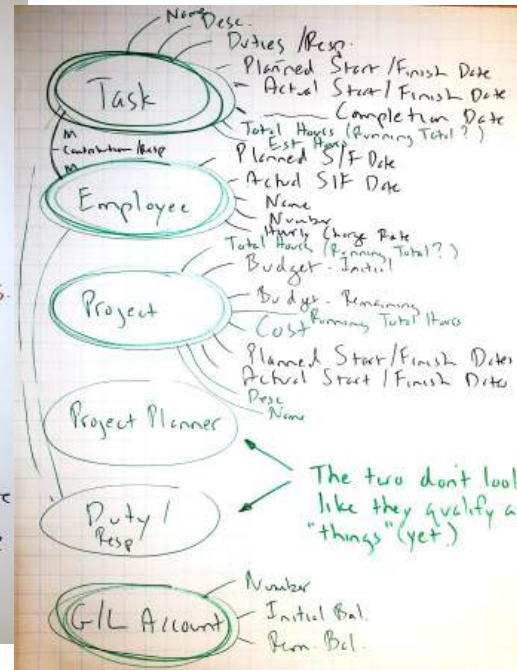 Name
Desc.
Duties / Resp.
Planned Start / Finish Date
Actual Start / Finish Date
Completion Date
Task
Total Hours (Running Total?)
Est Hours
M
Contribution / Resp
M
Planned S/F Date
Actual S/F Date
Employee
Name
Number
Hourly Charge Rate
Total Hours (Running Total?)
Budget - Initial
Project
Budget - Remaining
Running Total Hours
Cost
Planned Start / Finish Dates
Actual Start / Finish Dates
Desc
Name
Project Planner
The two don't
like they qualify
"things" (yet)
Duty /
Resp
Number
G/L Account
Initial Bal.
Rem. Bal.